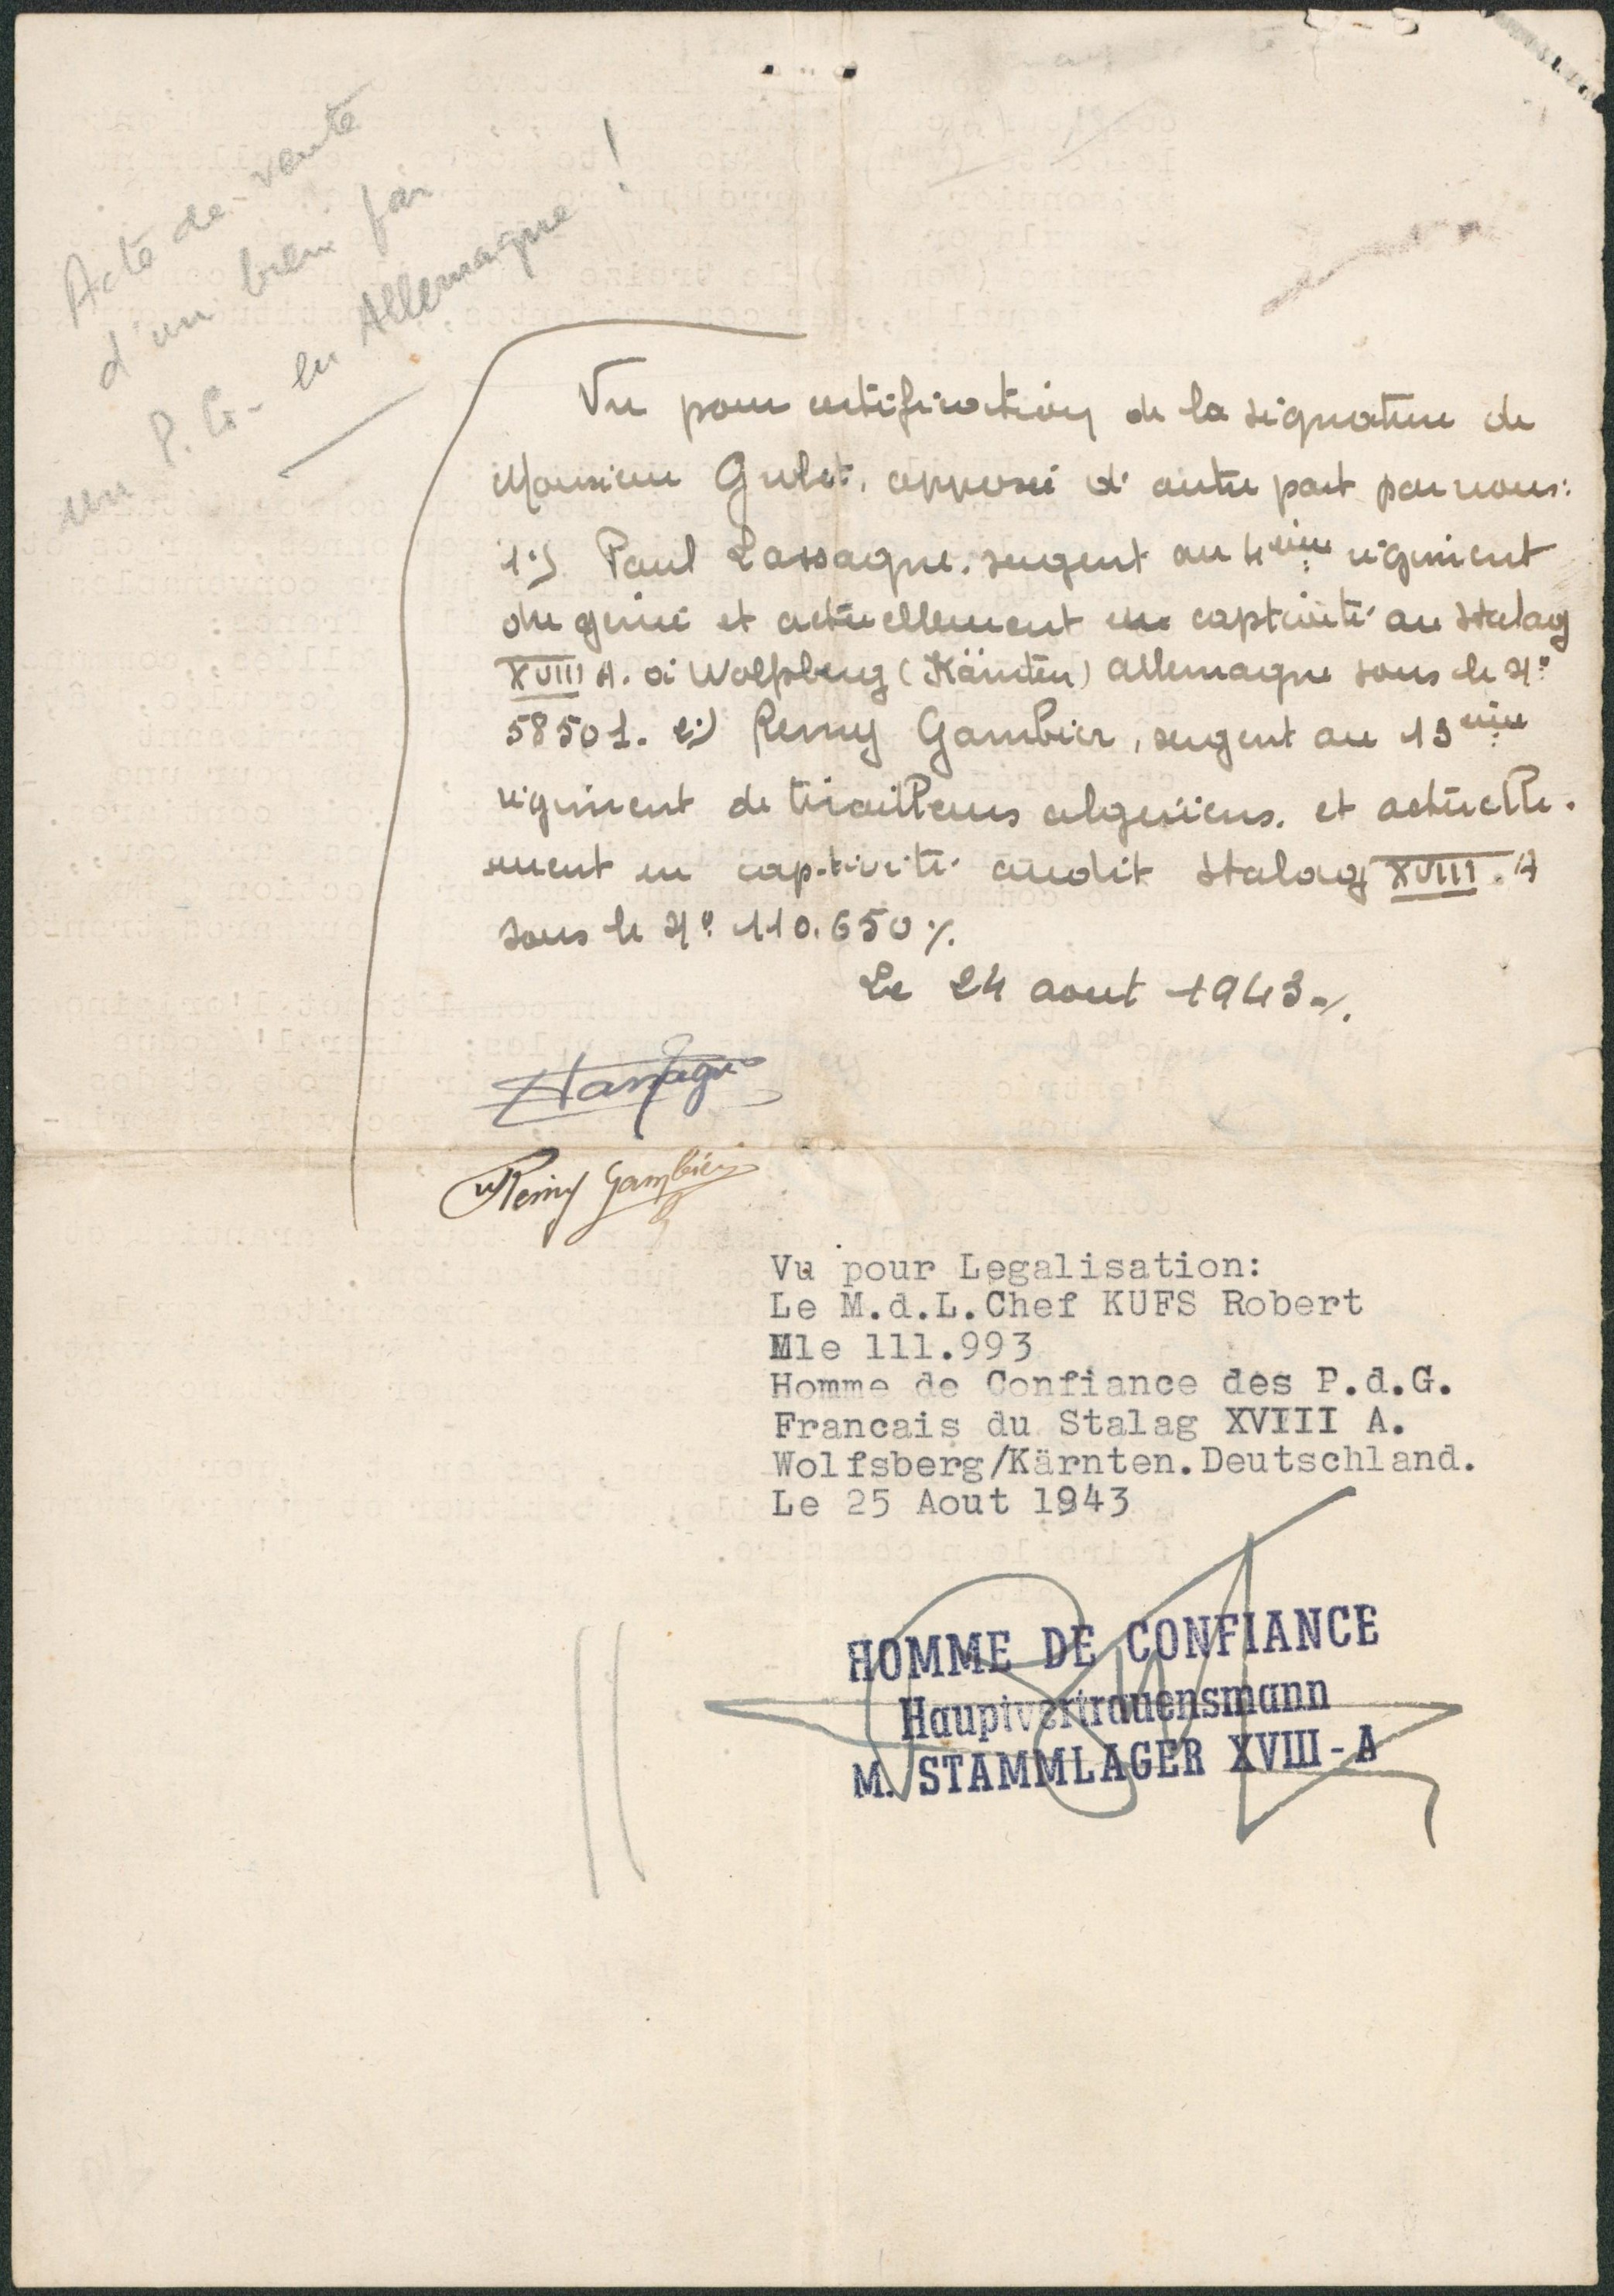 Acte de vente
d'un bien par
un P.G. en Allemagne !
Vu pour certification de la signature de
Monsieur Gulet, apposée d'autre part par nous:
1:) Paul Lassagne, sergent au 4ème régiment
du génie et actuellement en captivité au Stalag
XVIII A. à Wolfsberg (Kärnten) Allemagne sous le N°
58501. 2:) Remy Gambier, sergent au 13ème
régiment de tirailleurs algériens, et actuelle-
ment en captivité audit Stalag XVIII. A
sous le N° 110.650 %.
Le 24 aout 1943 %.
Lassagne
Remy Gambier
Vu pour Legalisation:
Le M.d.L.Chef KUFS Robert
Mle 111.993
Homme de Confiance des P.d.G.
Francais du Stalag XVIII A.
Wolfsberg/Kärnten.Deutschland.
Le 25 Aout 1943
HOMME DE CONFIANCE
Hauptvertrauensmann
M. STAMMLAGER XVIII-A